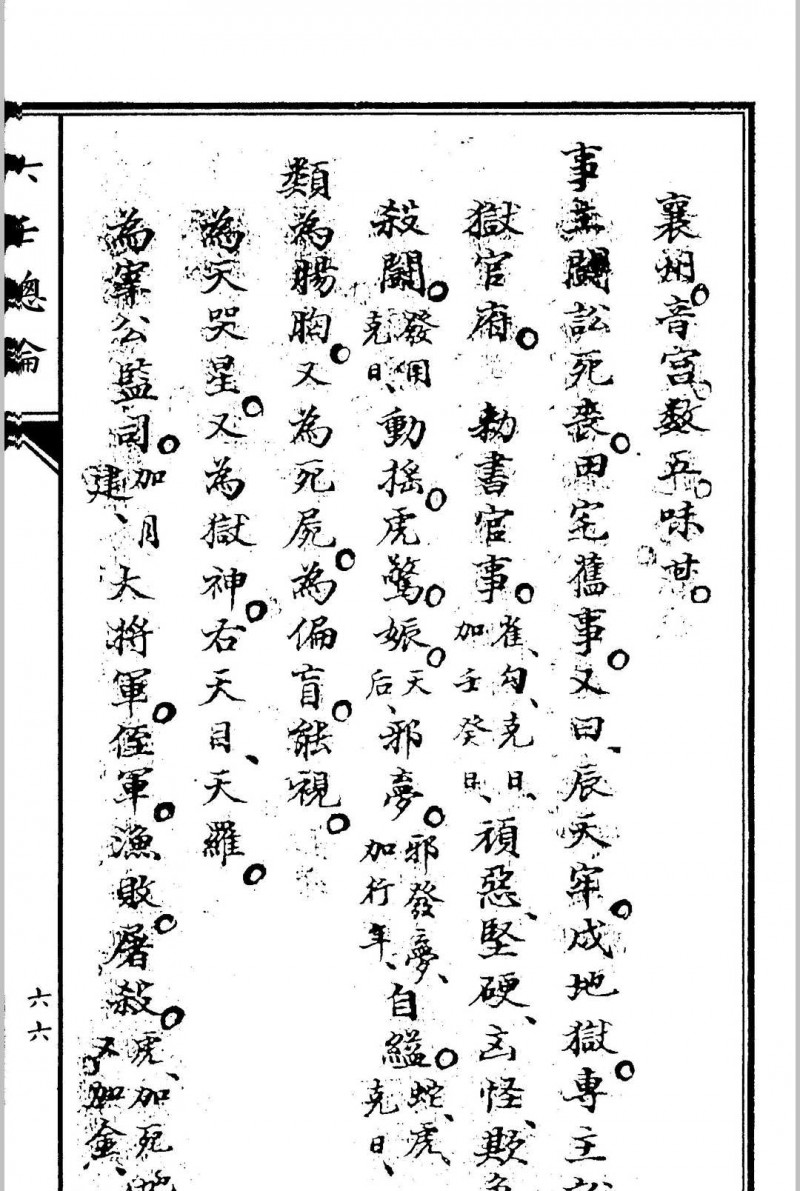 襄州。音宮。数五。味甘。
事主鬪訟死喪。田宅舊事。又曰、辰天牢。戌地獄。專主訟
獄官府。勅書官事。雀、勾、克日、加壬癸日、頑惡、堅硬、凶怪、欺
殺鬪。發用克日、動搖。虎驚。娠。天后、邪夢。邪發夢、加行年、自縊。蛇、虎、克日、
類為腸胸。又為死屍。為偏盲。能視。
為天哭星。又為獄神。右天目、天羅。
為寡公監司。加月建、大將軍。侄軍。漁敗。屠殺。虎、加死又加金、
六壬總論
六六